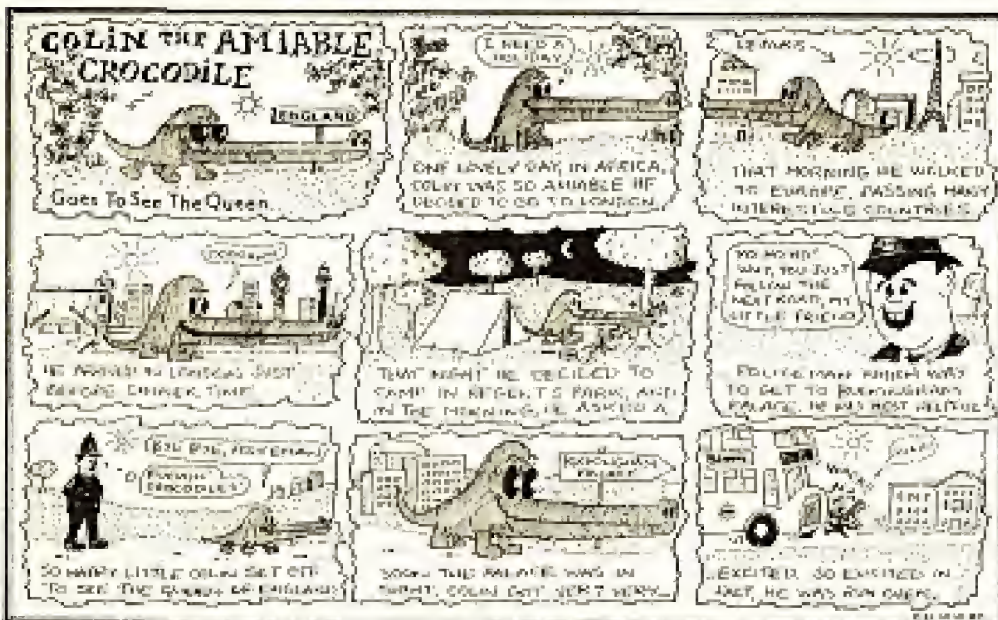 COLIN THE AMIABLE
CROCODILE
ENGLAND
Goes To See The Queen
I NEED A
HOLIDAY
ONE LOVELY DAY IN AFRICA,
COLIN WAS SO AMIABLE HE
DECIDED TO GO TO LONDON.
LE MANS
THAT MORNING HE WALKED
TO EUROPE, PASSING MANY
INTERESTING COUNTRIES.
HE ARRIVED IN LONDON JUST
BEFORE DINNER TIME.
THAT NIGHT HE DECIDED TO
CAMP IN REGENT'S PARK, AND
IN THE MORNING, HE ASKED A
YOU JUST
FOLLOW THE
NEXT ROAD, MY
LITTLE FRIEND
POLICEMAN WHICH WAY
TO GET TO BUCKINGHAM
PALACE. HE WAS MOST HELPFUL.
BYE BYE, POLICEMAN
CROCODILE
SO HAPPY LITTLE COLIN SET OFF
TO SEE THE QUEEN OF ENGLAND.
BUCKINGHAM
PALACE
SOON THE PALACE WAS IN
SIGHT. COLIN GOT VERY VERY
EXCITED. SO EXCITED IN
FACT, HE WAS RUN OVER.